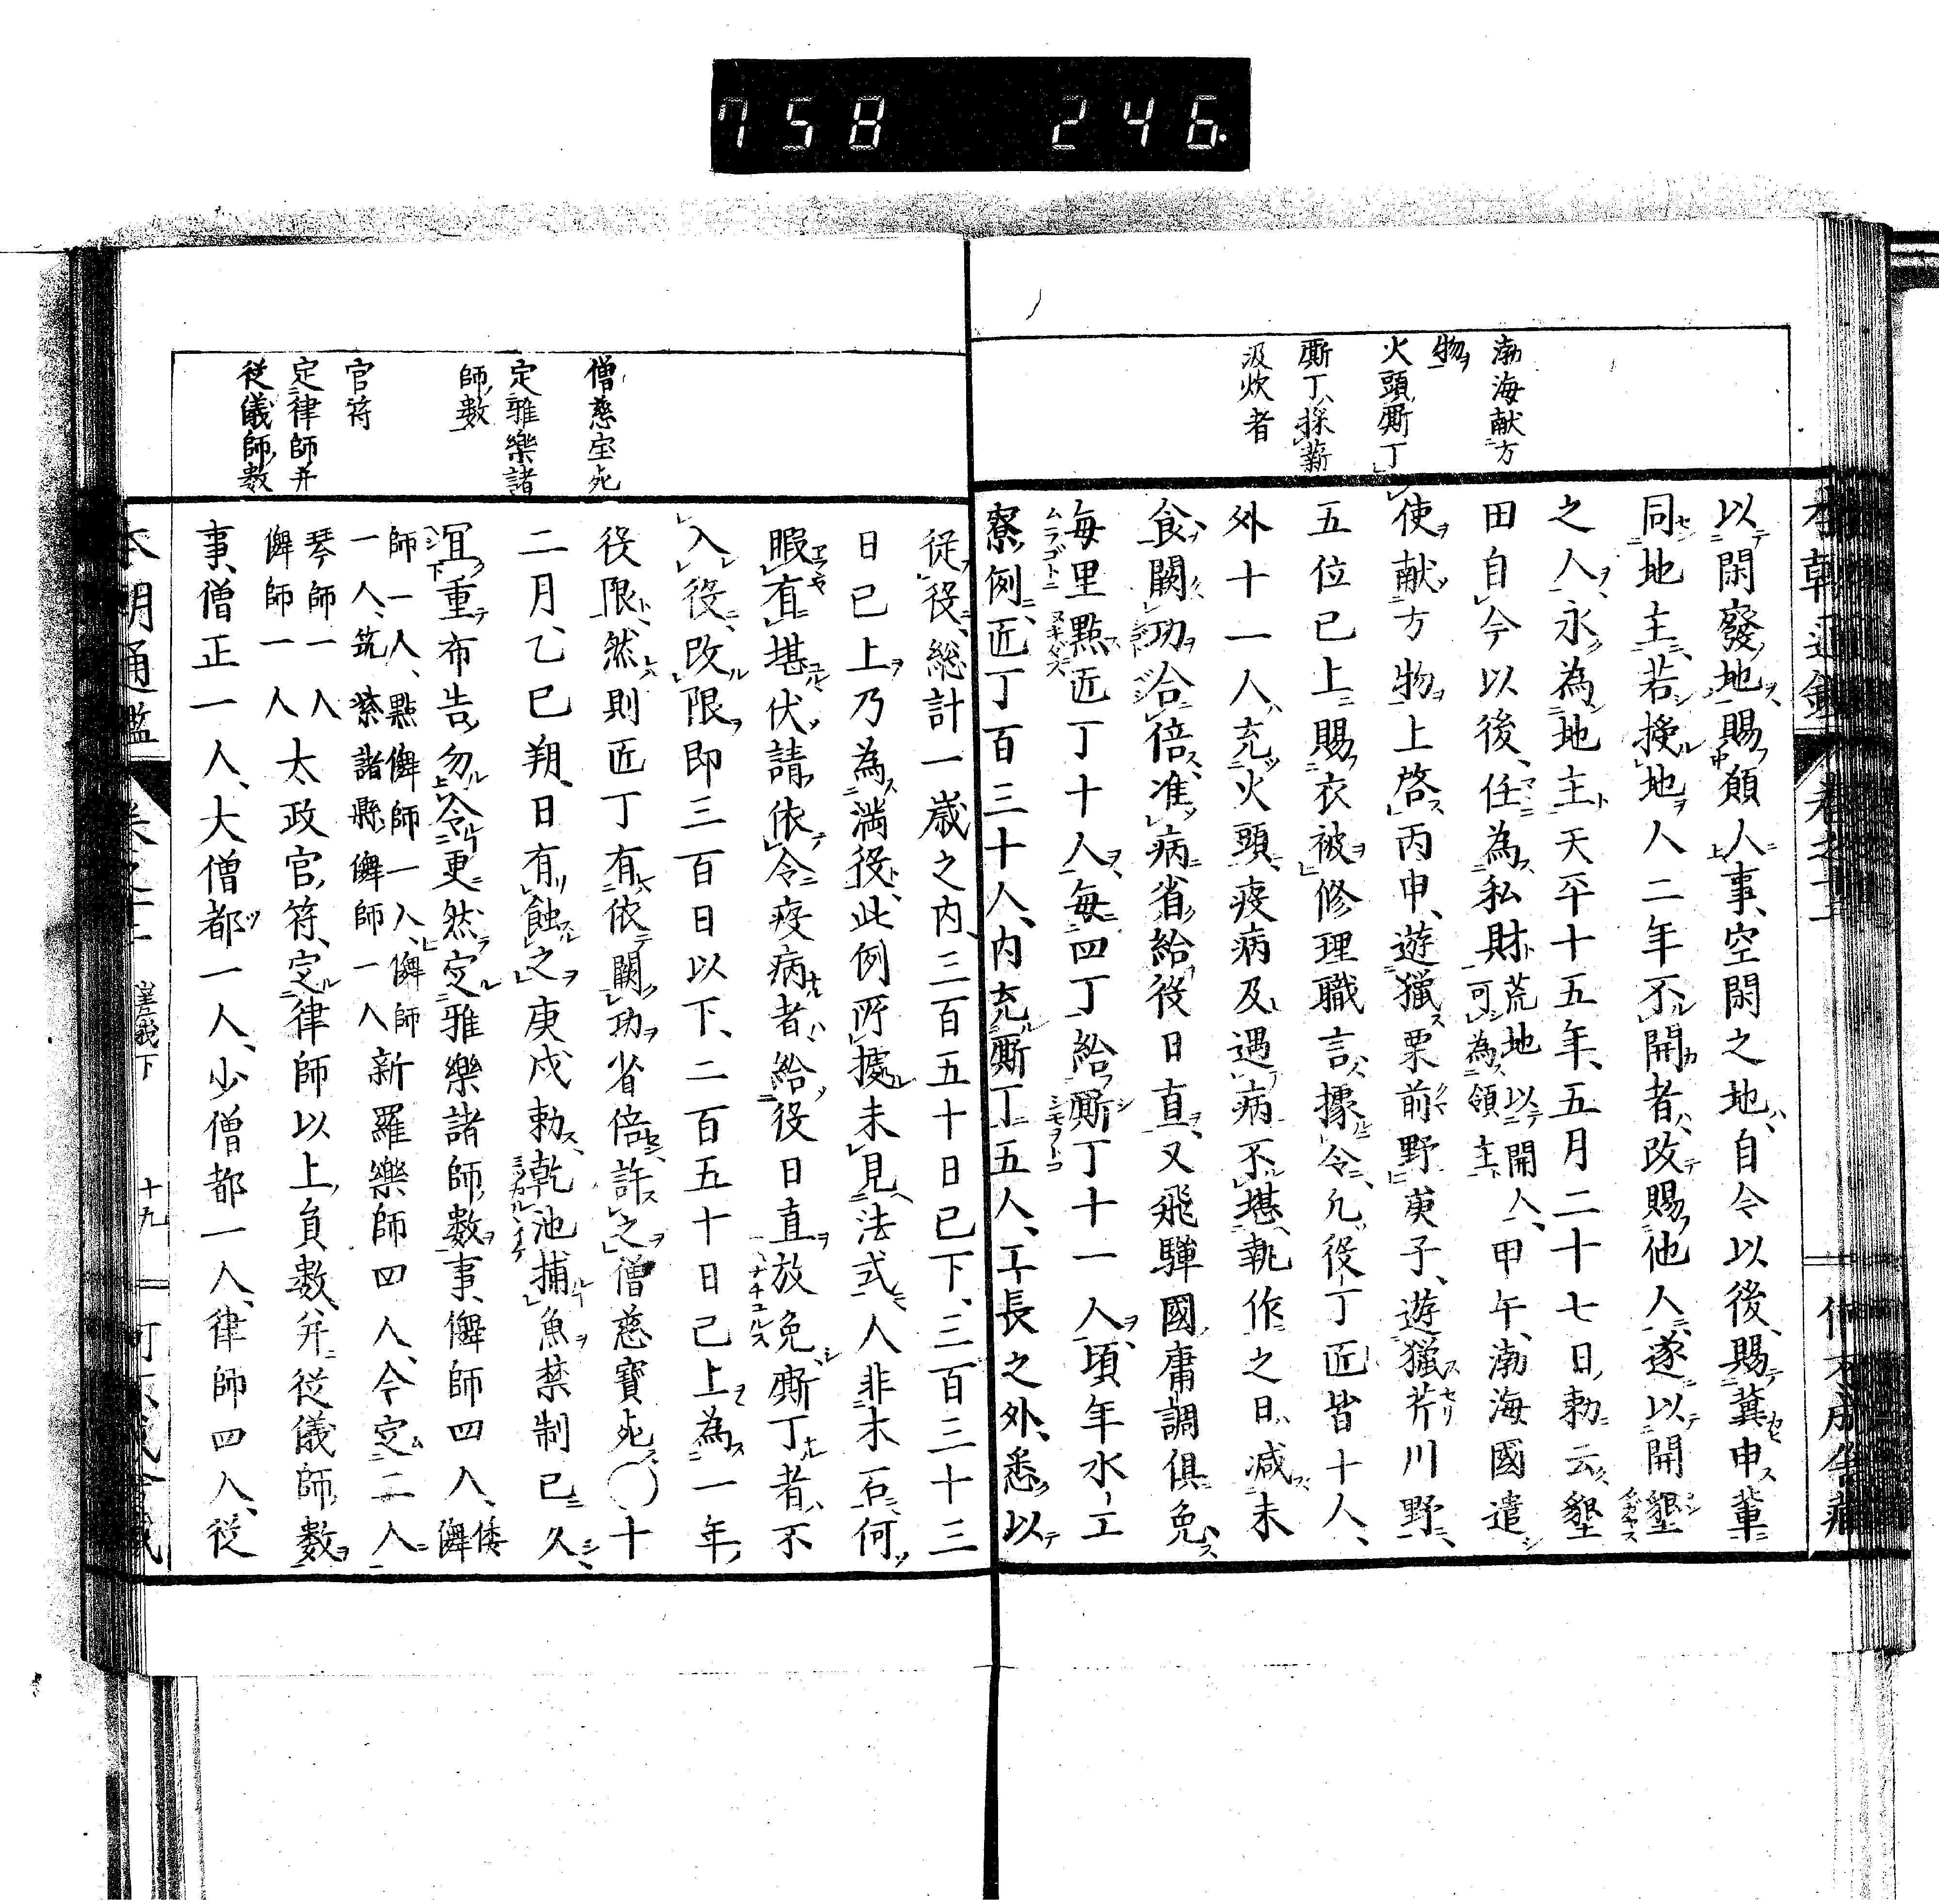 758 246.
渤海献方
物
火頭厮丁
厮丁採薪
汲炊者
以閑廢地賜願人事、空閑之地、自今以後、賜冀申輩
同地主、若授地人二年不開者、改賜他人、遂以開墾
之人、永為地主、天平十五年、五月二十七日、勅云、墾
田自今以後、任為私財、荒地以開人、可為領主、甲午、渤海國遣
使献方物上啓、丙申、遊獵栗前野、庚子、遊獵芹川野、
五位已上賜衣被、修理職言、據令允役丁匠皆十人、
外十一人、充火頭、疫病及遇病不堪執作之日、减未
食闕功合倍、准病省給役日直、又飛騨國庸調俱免、
毎里點匠丁十人、毎四丁給厮丁十一人、頃年水工
寮例、匠丁百三十人、内充厮丁五人、工長之外、悉以
僧慈宝死
定雅樂諸
師數
官符
定律師并
従儀師數
従役、総計一歳之内、三百五十日已下、三百三十三
日已上、乃為満役、此例所據未見法式、人非木石、何
暇有堪、伏請、依令疫病者、給役日直放免、厮丁者、不
入役、改限、即三百日以下、二百五十日已上為一年
役限、然則匠丁有依闕功省倍、許之、僧慈寶死〇十
二月、乙巳朔、日有蝕之、庚戌勅、乾池捕魚禁制已久、
宜重布告、勿令更然、定雅樂諸師數事、儛師四人、倭儛
師一人、點儛師一人、儛師
一人、筑紫諸縣儛師一人新羅樂師四人、今定二人
琴師一人
儛師一人太政官符、定律師以上員數、并従儀師數
事、僧正一人、大僧都一人、少僧都一人、律師四人、従
本朝通鑑 卷之二十 嵯峨下 十九